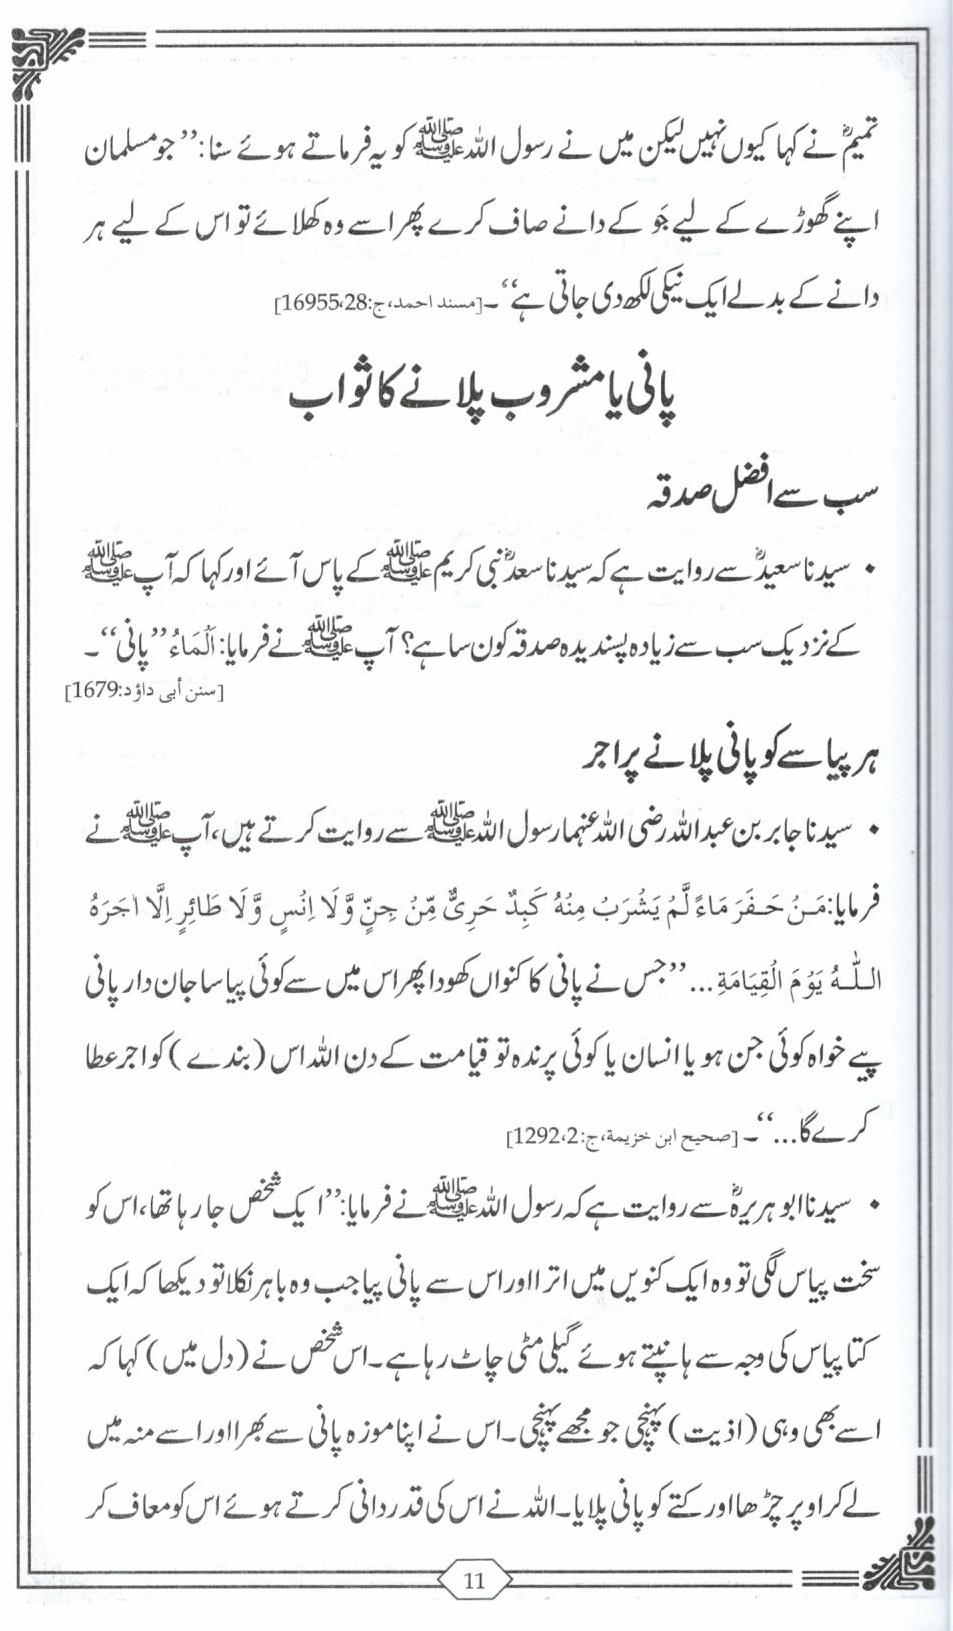 تمیمؓ نے کہا کیوں نہیں لیکن میں نے رسول اللہ ﷺ کو یہ فرماتے ہوئے سنا: ’’جو مسلمان
اپنے گھوڑے کے لیے جَو کے دانے صاف کرے پھر اسے وہ کھلائے تو اس کے لیے ہر
دانے کے بدلے ایک نیکی لکھ دی جاتی ہے‘‘۔ [مسند احمد، ج:28، 16955]
پانی یا مشروب پلانے کا ثواب
سب سے افضل صدقہ
• سیدنا سعیدؓ سے روایت ہے کہ سیدنا سعدؓ نبی کریم ﷺ کے پاس آئے اور کہا کہ آپ ﷺ
کے نزدیک سب سے زیادہ پسندیدہ صدقہ کون سا ہے؟ آپ ﷺ نے فرمایا: اَلْمَاءُ ’’پانی‘‘۔
[سنن أبی داؤد:1679]
ہر پیاسے کو پانی پلانے پر اجر
• سیدنا جابر بن عبداللہ رضی اللہ عنہما رسول اللہ ﷺ سے روایت کرتے ہیں، آپ ﷺ نے
فرمایا: مَنْ حَفَرَ مَاءً لَّمْ يَشْرَبْ مِنْهُ كَبِدٌ حَرِيٌّ مِّنْ جِنٍّ وَّلَا اِنْسٍ وَّلَا طَائِرٍ اِلَّا اٰجَرَهُ
اللّٰهُ يَوْمَ الْقِيَامَةِ... ’’جس نے پانی کا کنواں کھودا پھر اس میں سے کوئی پیاسا جان دار پانی
پیے خواہ کوئی جن ہو یا انسان یا کوئی پرندہ تو قیامت کے دن اللہ اس (بندے) کو اجر عطا
کرے گا...‘‘۔ [صحیح ابن خزیمة، ج:2، 1292]
• سیدنا ابو ہریرہؓ سے روایت ہے کہ رسول اللہ ﷺ نے فرمایا: ’’ایک شخص جا رہا تھا، اس کو
سخت پیاس لگی تو وہ ایک کنویں میں اترا اور اس سے پانی پیا جب وہ باہر نکلا تو دیکھا کہ ایک
کتا پیاس کی وجہ سے ہانپتے ہوئے گیلی مٹی چاٹ رہا ہے۔ اس شخص نے (دل میں) کہا کہ
اسے بھی وہی (اذیت) پہنچی جو مجھے پہنچی۔ اس نے اپنا موزہ پانی سے بھرا اور اسے منہ میں
لے کر اوپر چڑھا اور کتے کو پانی پلایا۔ اللہ نے اس کی قدر دانی کرتے ہوئے اس کو معاف کر
11